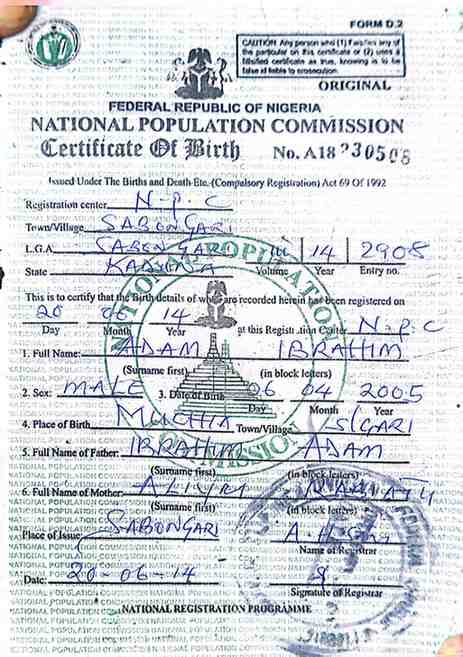 FORM D.2
CAUTION: Any person who (1) Falsifies any of
the particular on this certificate or (2) uses a
falsified certificate as true, knowing is to be
false is liable to prosecution.
ORIGINAL
FEDERAL REPUBLIC OF NIGERIA
NATIONAL POPULATION COMMISSION
Certificate Of Birth No. A18
Issued Under The Births and Death Etc. (Compulsory Registration) Act 69 Of 1992
Registration center N.p.C
Town/Village SABONGARI
L.G.A. SABON GARI 14 2905
State KADUNA Volume Year Entry no.
This is to certify that the Birth details of which are recorded herein has been registered on
20 06 14 at this Registration Center N.p.C
Day Month Year
1. Full Name: ADAM IBRAHIM
(Surname first) (in block leters)
2. Sex: MALE 3. Date of Birth 06 04 2005
Day Month Year
4. Place of Birth MUCHIA Town/Village S/GARI
5. Full Name of Father: IBRAHIM ADAM
(Surname first) (in block leters)
6. Full Name of Mother:
(Surname first) (in block leters)
Place of Issue: SABONGARI
Name of Registrar
Date: 20-06-14
Signature of Registrar
NATIONAL REGISTRATION PROGRAMME
NATIONAL POPULATION COMMISSION